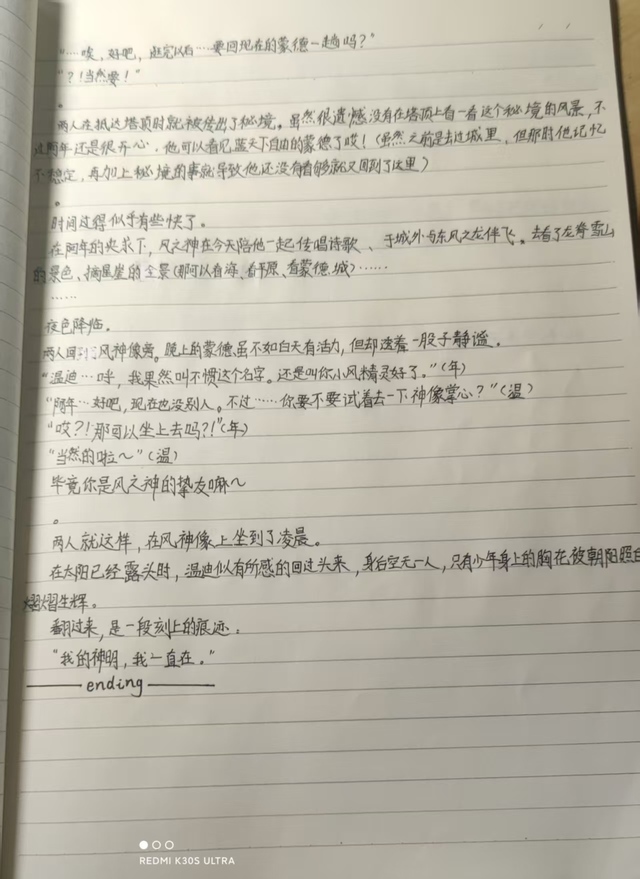 “…唉、好吧，逛完以后…要回现在的蒙德一趟吗？”
“？！当然要！”
。
两人在抵达塔顶时就被传出了秘境。虽然很遗憾没有在塔顶上看一看这个秘境的风景，不
过阿年还是很开心、他可以看见蓝天下自由的蒙德了哎！（虽然之前是去过城里，但那时他记忆
不稳定，再加上秘境的事就导致他还没有看够就又回到了这里）
。
时间过得似乎有些快了。
在阿年的央求下，风之神在今天陪他一起传唱诗歌、于城外与东风之龙伴飞。去看了龙脊雪山
的景色、摘星崖的全景（那可以看海、看平原、看蒙德城）……
……
夜色降临。
两人回到了风神像旁。晚上的蒙德虽不如白天有活力，但却透着一股子静谧。
“温迪…呼，我果然叫不惯这个名字。还是叫你小风精灵好了。”（年）
“阿年…好吧，现在也没别人。不过……你要不要试着去一下神像掌心？”（温）
“哎？！那可以坐上去吗？！”（年）
“当然的啦～”（温）
毕竟你是风之神的挚友嘛～
。
两人就这样，在风神像上坐到了凌晨。
在太阳已经露头时，温迪似有所感的回过头来，身后空无一人，只有少年身上的胸花被朝阳照白
熠熠生辉。
翻过来，是一段刻上的痕迹。
“我的神明，我一直在。”
ending
REDMI K30S ULTRA